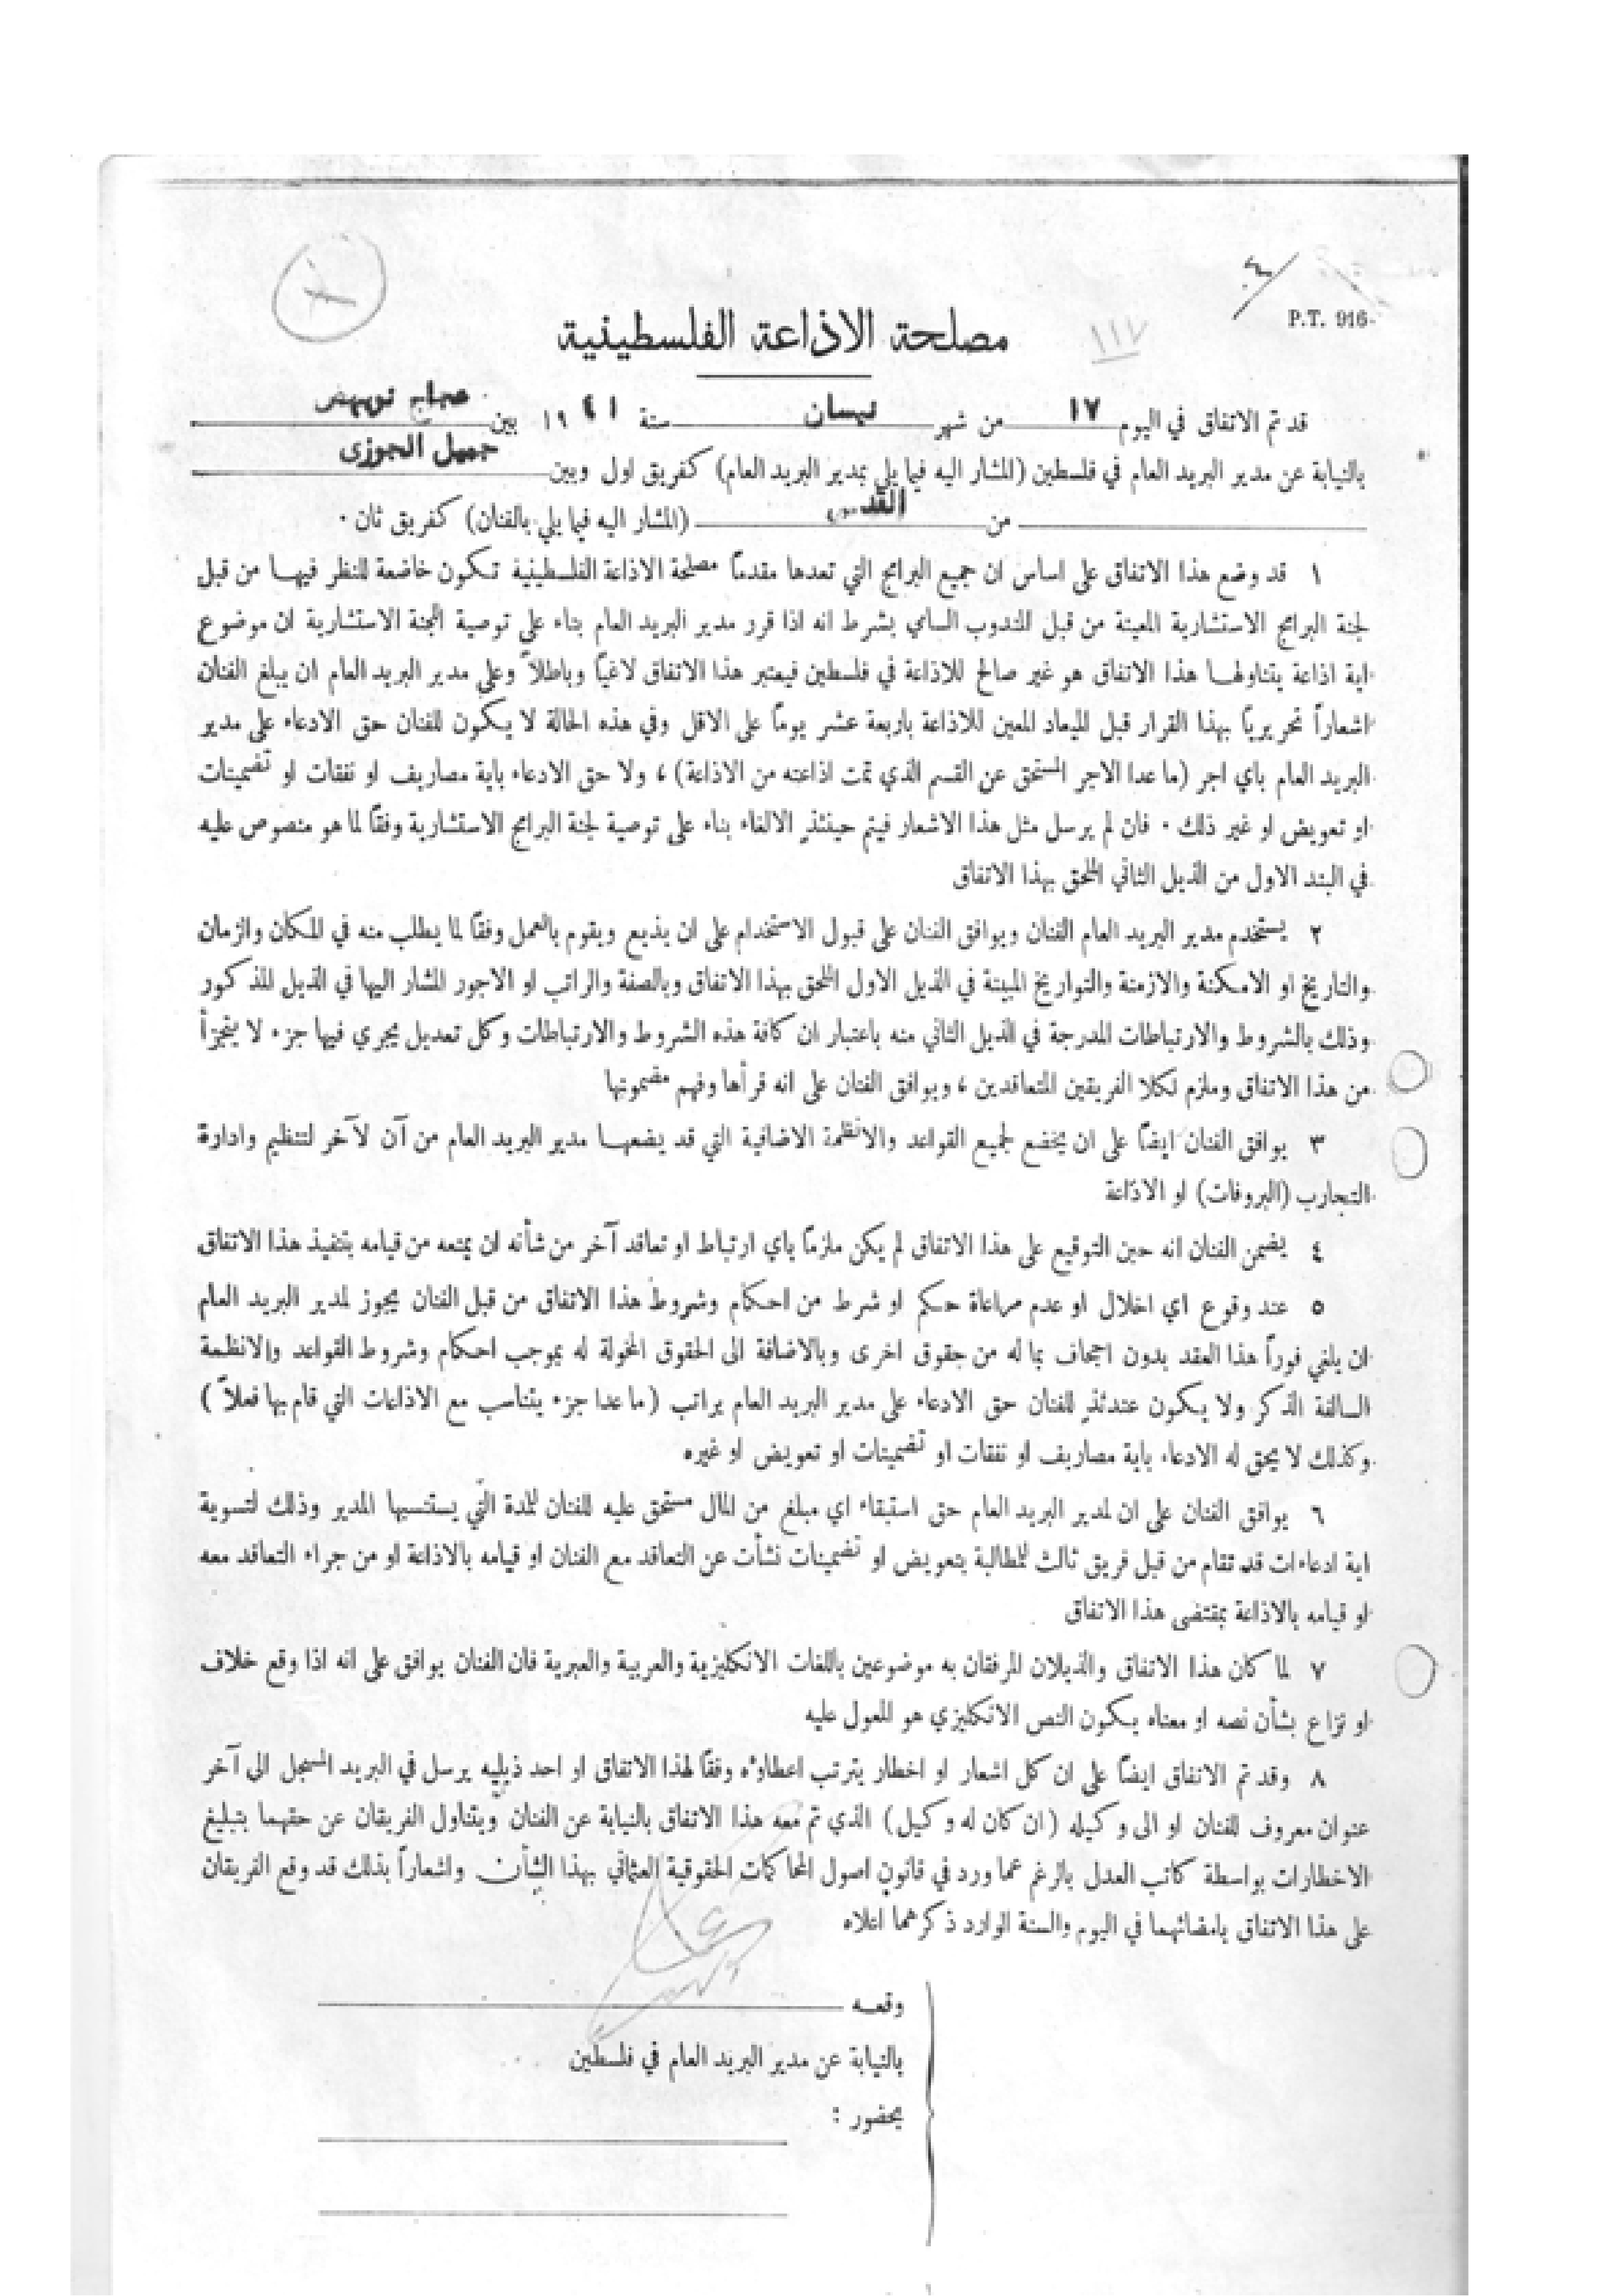 P.T. 916
١١٧
مصلحة الاذاعة الفلسطينية
قد تم الاتفاق في اليوم ١٧ من شهر نيسان سنة ١٩٤١ بين عجاج نويهض
بالنيابة عن مدير البريد العام في فلسطين (المشار اليه فيما يلي بمدير البريد العام) كفريق اول وبين جميل الجوزى
من القدس (المشار اليه فيما يلي بالفنان) كفريق ثان ٠
١ قد وضع هذا الاتفاق على اساس ان جميع البرامج التي تعدها مقدماً مصلحة الاذاعة الفلسطينية تكون خاضعة للنظر فيها من قبل
لجنة البرامج الاستشارية المعينة من قبل المندوب السامي بشرط انه اذا قرر مدير البريد العام بناء على توصية اللجنة الاستشارية ان موضوع
اية اذاعة يتناولها هذا الاتفاق هو غير صالح للاذاعة في فلسطين فيعتبر هذا الاتفاق لاغياً وباطلاً وعلى مدير البريد العام ان يبلغ الفنان
اشعاراً تحريرياً بهذا القرار قبل الميعاد المعين للاذاعة باربعة عشر يوماً على الاقل وفي هذه الحالة لا يكون للفنان حق الادعاء على مدير
البريد العام باي اجر (ما عدا الاجر المستحق عن القسم الذي تمت اذاعته من الاذاعة) ، ولا حق الادعاء باية مصاريف او نفقات او تضمينات
او تعويض او غير ذلك ٠ فان لم يرسل مثل هذا الاشعار فيتم حينئذٍ الالغاء بناء على توصية لجنة البرامج الاستشارية وفقاً لما هو منصوص عليه
في البند الاول من الذيل الثاني الملحق بهذا الاتفاق
٢ يستخدم مدير البريد العام الفنان ويوافق الفنان على قبول الاستخدام على ان يذيع ويقوم بالعمل وفقاً لما يطلب منه في المكان والزمان
والتاريخ او الامكنة والازمنة والتواريخ المبينة في الذيل الاول الملحق بهذا الاتفاق وبالصفة والراتب او الاجور المشار اليها في الذيل المذكور
وذلك بالشروط والارتباطات المدرجة في الذيل الثاني منه باعتبار ان كافة هذه الشروط والارتباطات وكل تعديل يجري فيها جزء لا يتجزأ
من هذا الاتفاق وملزم لكلا الفريقين المتعاقدين ، ويوافق الفنان على انه قرأها وفهم مضمونها
٣ يوافق الفنان ايضاً على ان يخضع لجميع القواعد والانظمة الاضافية التي قد يضعها مدير البريد العام من آن لآخر لتنظيم وادارة
التجارب (البروفات) او الاذاعة
٤ يضمن الفنان انه حين التوقيع على هذا الاتفاق لم يكن ملزماً باي ارتباط او تعاقد آخر من شأنه ان يمنعه من قيامه بتنفيذ هذا الاتفاق
٥ عند وقوع اي اخلال او عدم مراعاة حكم او شرط من احكام وشروط هذا الاتفاق من قبل الفنان يجوز لمدير البريد العام
ان يلغي فوراً هذا العقد بدون اجحاف بما له من حقوق اخرى وبالاضافة الى الحقوق المخولة له بموجب احكام وشروط القواعد والانظمة
السالفة الذكر ولا يكون عندئذٍ للفنان حق الادعاء على مدير البريد العام براتب (ما عدا جزء يتناسب مع الاذاعات التي قام بها فعلاً)
وكذلك لا يحق له الادعاء باية مصاريف او نفقات او تضمينات او تعويض او غيره
٦ يوافق الفنان على ان لمدير البريد العام حق استبقاء اي مبلغ من المال مستحق عليه للفنان للمدة التي يستنسبها المدير وذلك لتسوية
اية ادعاءات قد تقام من قبل فريق ثالث للمطالبة بتعويض او تضمينات نشأت عن التعاقد مع الفنان او قيامه بالاذاعة او من جراء التعاقد معه
او قيامه بالاذاعة بمقتضى هذا الاتفاق
٧ لما كان هذا الاتفاق والذيلان المرفقان به موضوعين باللغات الانكليزية والعربية والعبرية فان الفنان يوافق على انه اذا وقع خلاف
او نزاع بشأن نصه او معناه يكون النص الانكليزي هو المعول عليه
٨ وقد تم الاتفاق ايضاً على ان كل اشعار او اخطار يترتب اعطاؤه وفقاً لهذا الاتفاق او احد ذيليه يرسل في البريد المسجل الى آخر
عنوان معروف للفنان او الى وكيله (ان كان له وكيل) الذي تم معه هذا الاتفاق بالنيابة عن الفنان ويتناول الفريقان عن حقهما بتبليغ
الاخطارات بواسطة كاتب العدل بالرغم عما ورد في قانون اصول المحاكمات الحقوقية العثماني بهذا الشأن واشعاراً بذلك قد وقع الفريقان
على هذا الاتفاق بامضائهما في اليوم والسنة الوارد ذكرهما اعلاه
وقعه
بالنيابة عن مدير البريد العام في فلسطين
بحضور :